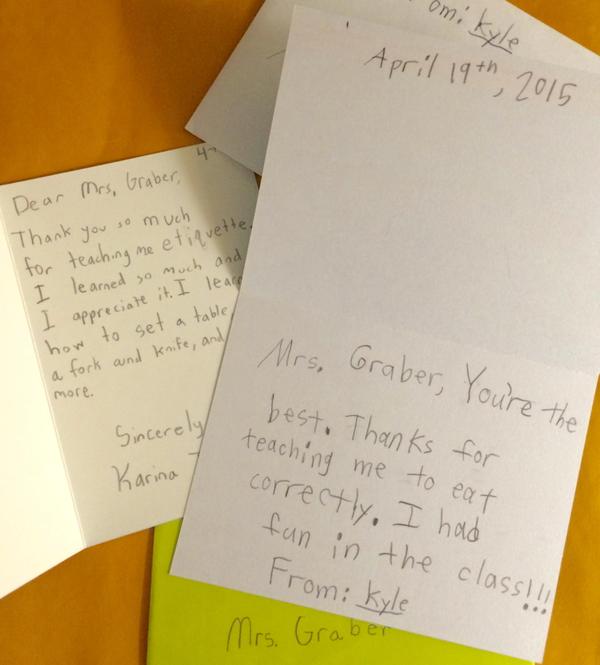 om: Kyle
April 19th, 2015
Mrs. Graber, You're the
best. Thanks for
teaching me to eat
correctly. I had
fun in the class!!!
From: Kyle
4-
Dear Mrs. Graber,
Thank you so much
for teaching me etiquette.
I learned so much and
I appreciate it. I lear
how to set a table,
a fork and knife, and
more.
Sincerely
Karina
Mrs. Graber